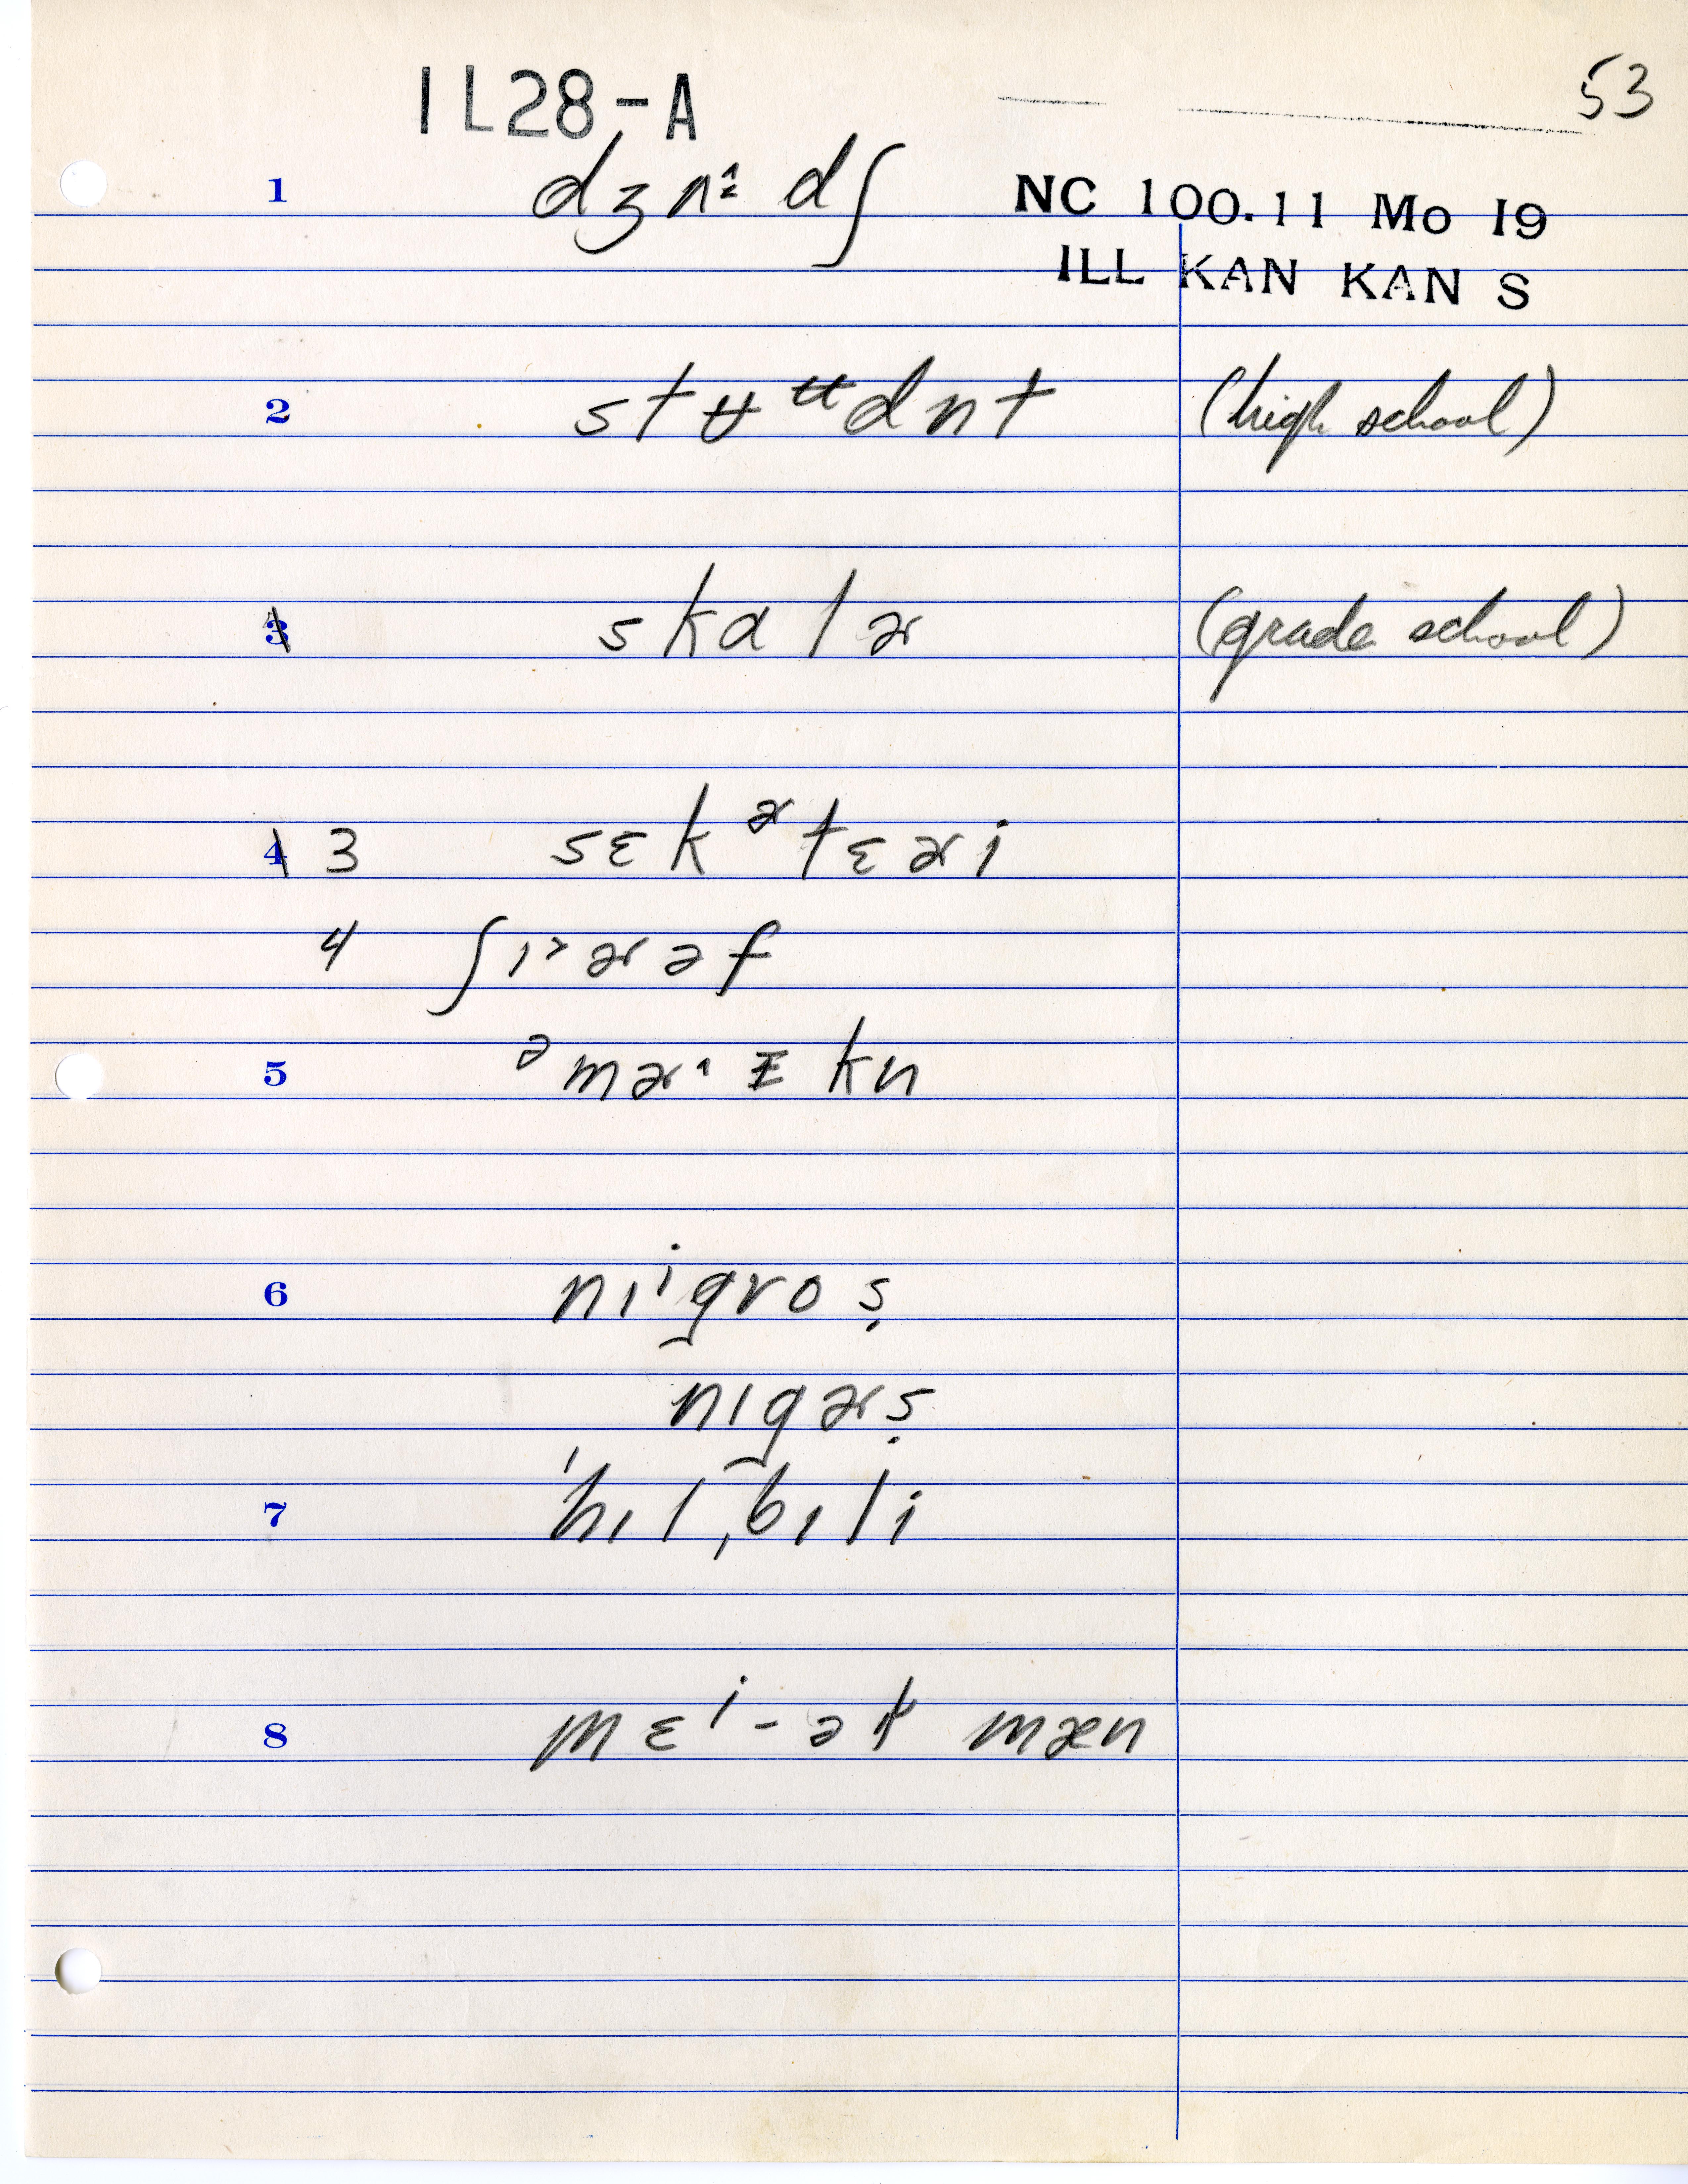 1L28-A
53
1 dʒʌ˄ː dʃ
NC 100.11 Mo 19
ILL KAN KAN S
2 stʉᶶdnt (high school)
3 skɑlɚ (grade school)
4 3 sɛkᵊ˞tɛɚi
4 ʃɪ˃ɚəf
5 ᵊmɚ˄ᵻkn
6 nɪⁱgros̬
nɪgɚs̬
7 ˈhɪlˌbɪli
8 mɛⁱ-ə mæn